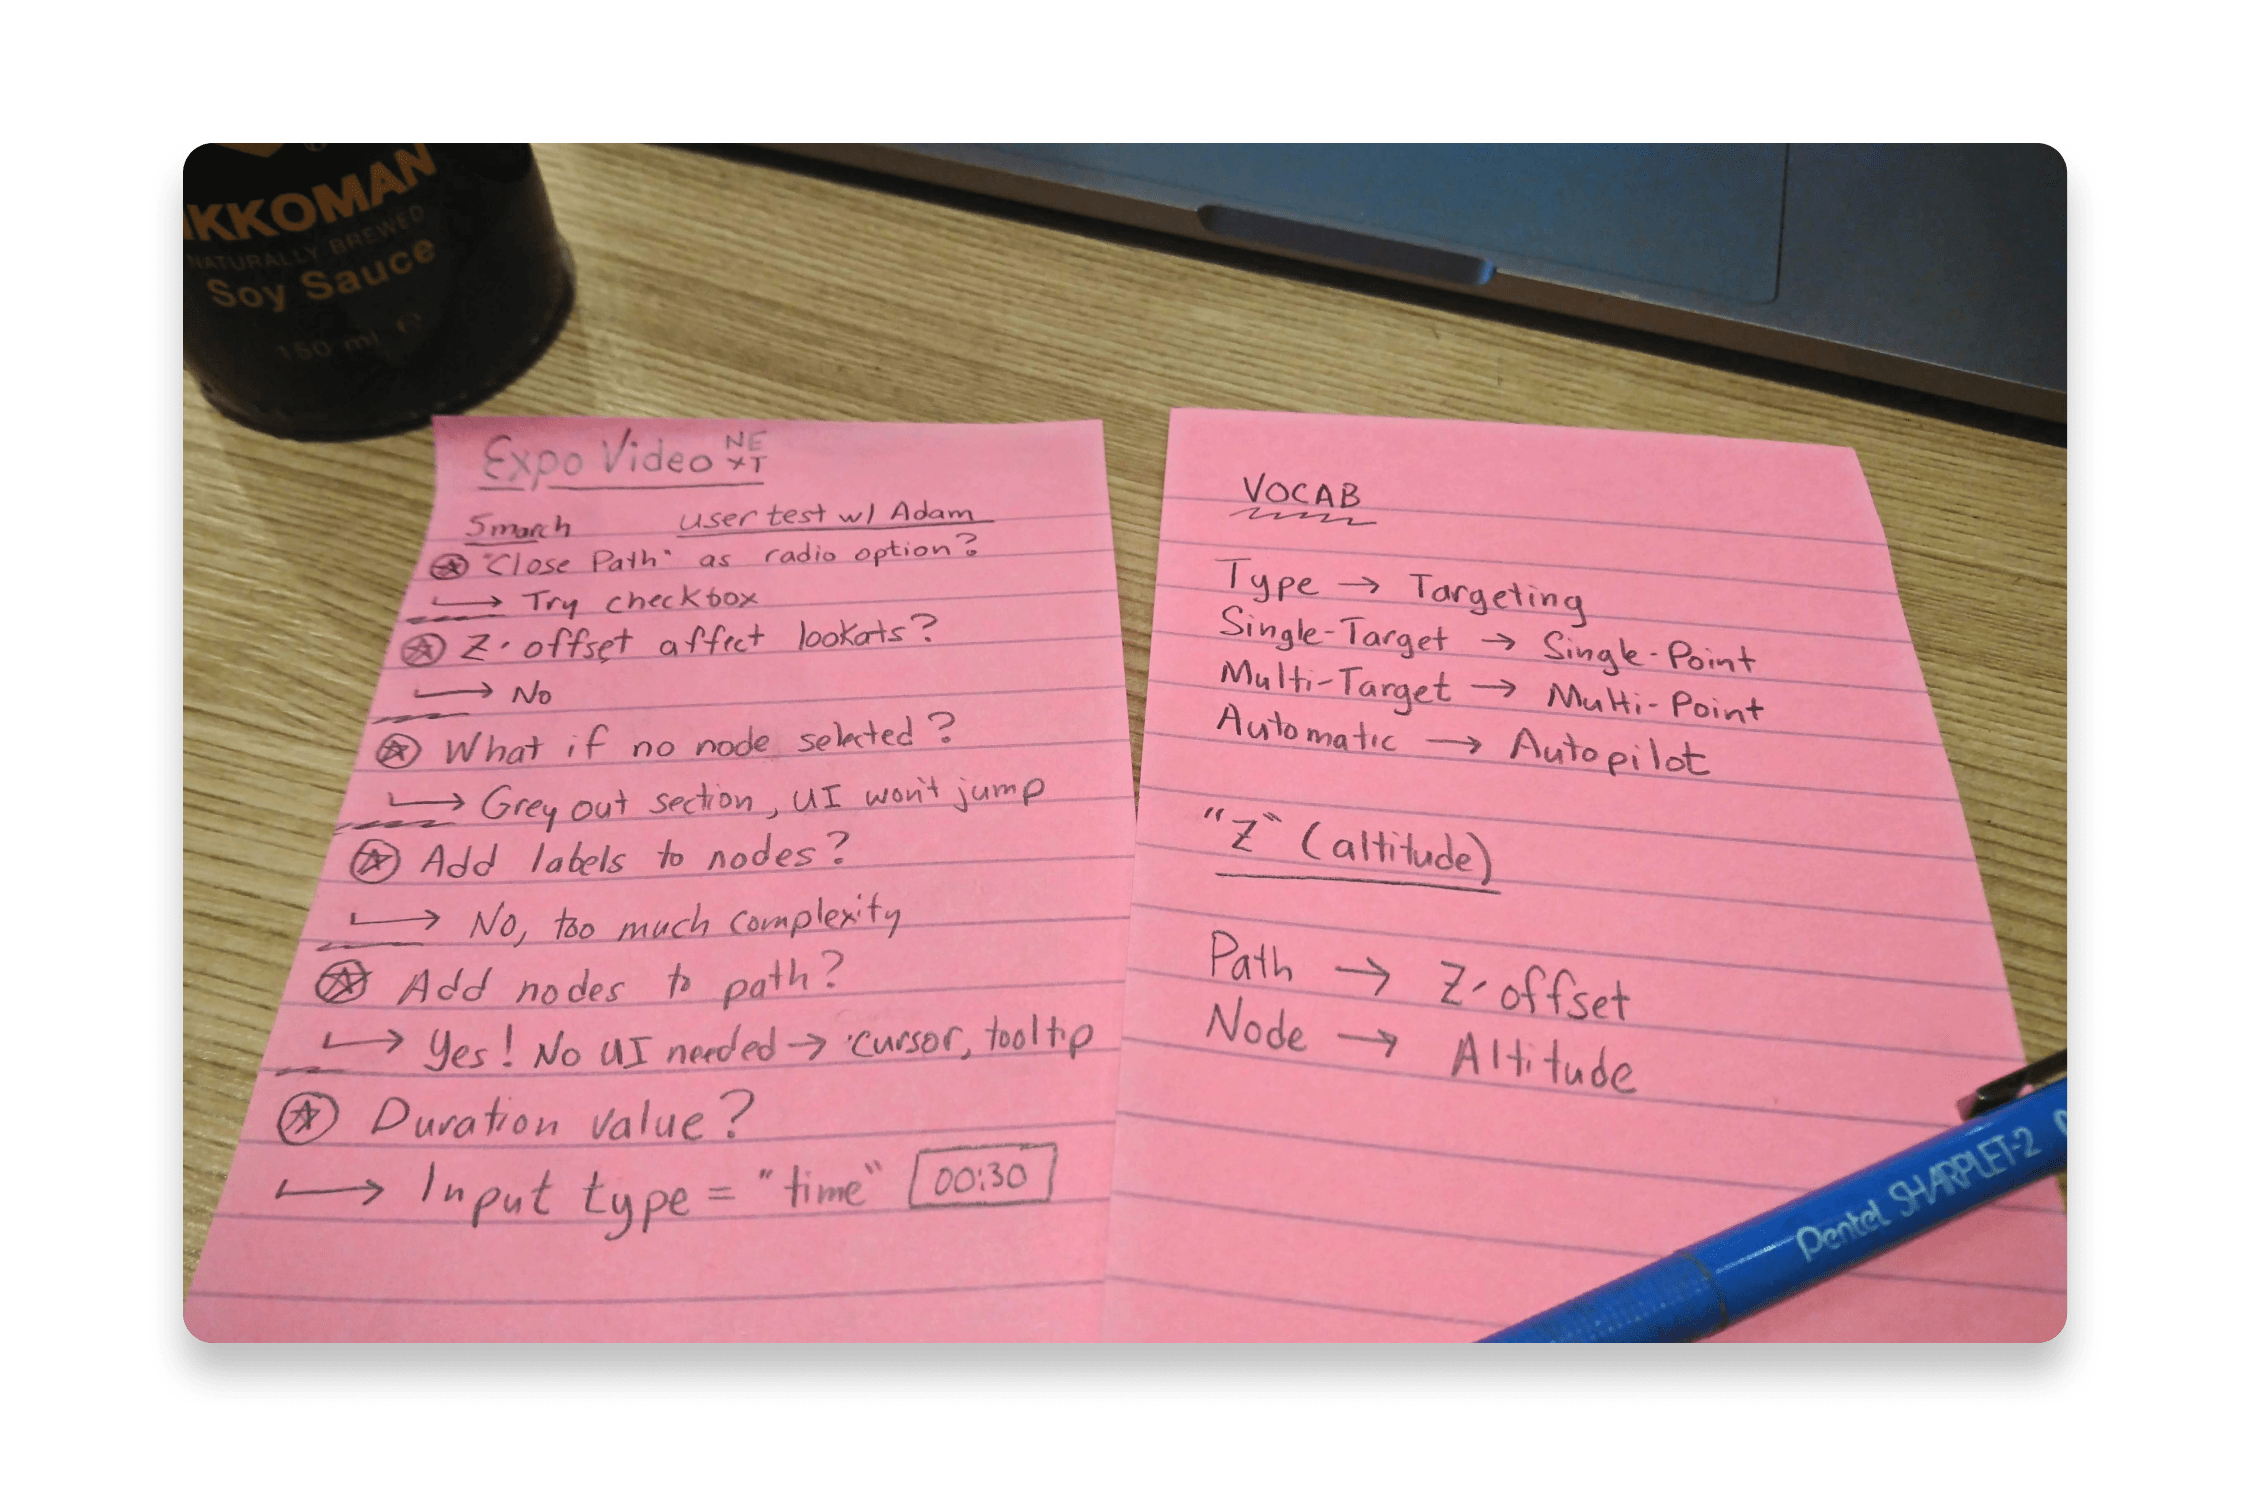 IKKOMAN
NATURALLY BREWED
Soy Sauce
150 ml e
Expo Video NEXT
5 march user test w/ Adam
"Close Path" as radio option?
→ Try checkbox
Z-offset affect lookats?
→ No
What if no node selected?
→ Grey out section, UI won't jump
Add labels to nodes?
→ No, too much complexity
Add nodes to path?
→ Yes! No UI needed → cursor, tooltip
Duration value?
→ Input type = "time" 00:30
VOCAB
Type → Targeting
Single-Target → Single-Point
Multi-Target → Multi-Point
Automatic → Autopilot
"Z" (altitude)
Path → Z-offset
Node → Altitude
Pentel SHARPLET-2